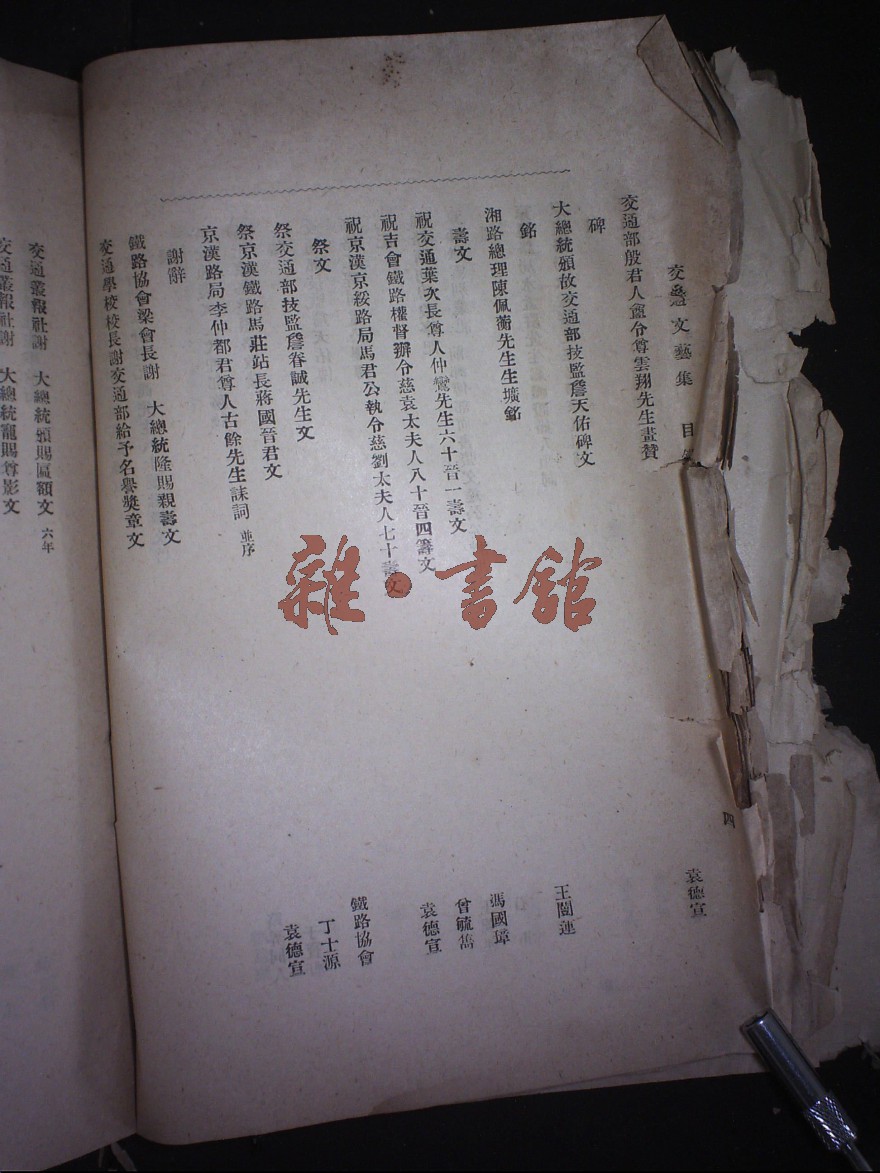 交通文藝集 目
四
交通部殷君人盦令尊雲翔先生畫贊 袁德宣
碑
大總統頒故交通部技監詹天佑碑文
銘
湘路總理陳佩蘅先生生壙銘 王闓運
壽文
祝交通葉次長尊人仲鸞先生六十晉一壽文 馮國璋
祝吉會鐵路權督辦令慈袁太夫人八十晉四籌文 曾毓雋
祝京漢京綏路局馬君公執令慈劉太夫人七十壽文 袁德宣
祭文
祭交通部技監詹眷誠先生文 鐵路協會
祭京漢鐵路馬莊站長蔣國晉君文 丁士源
京漢路局李仲都君尊人古餘先生誄詞 並序 袁德宣
謝辭
鐵路協會梁會長謝 大總統隆賜親壽文
交通學校校長謝交通部給予名譽獎章文
交通叢報社謝 大總統頒賜匾額文 六年
交通叢報社謝 大總統寵賜尊影文
雜·書館